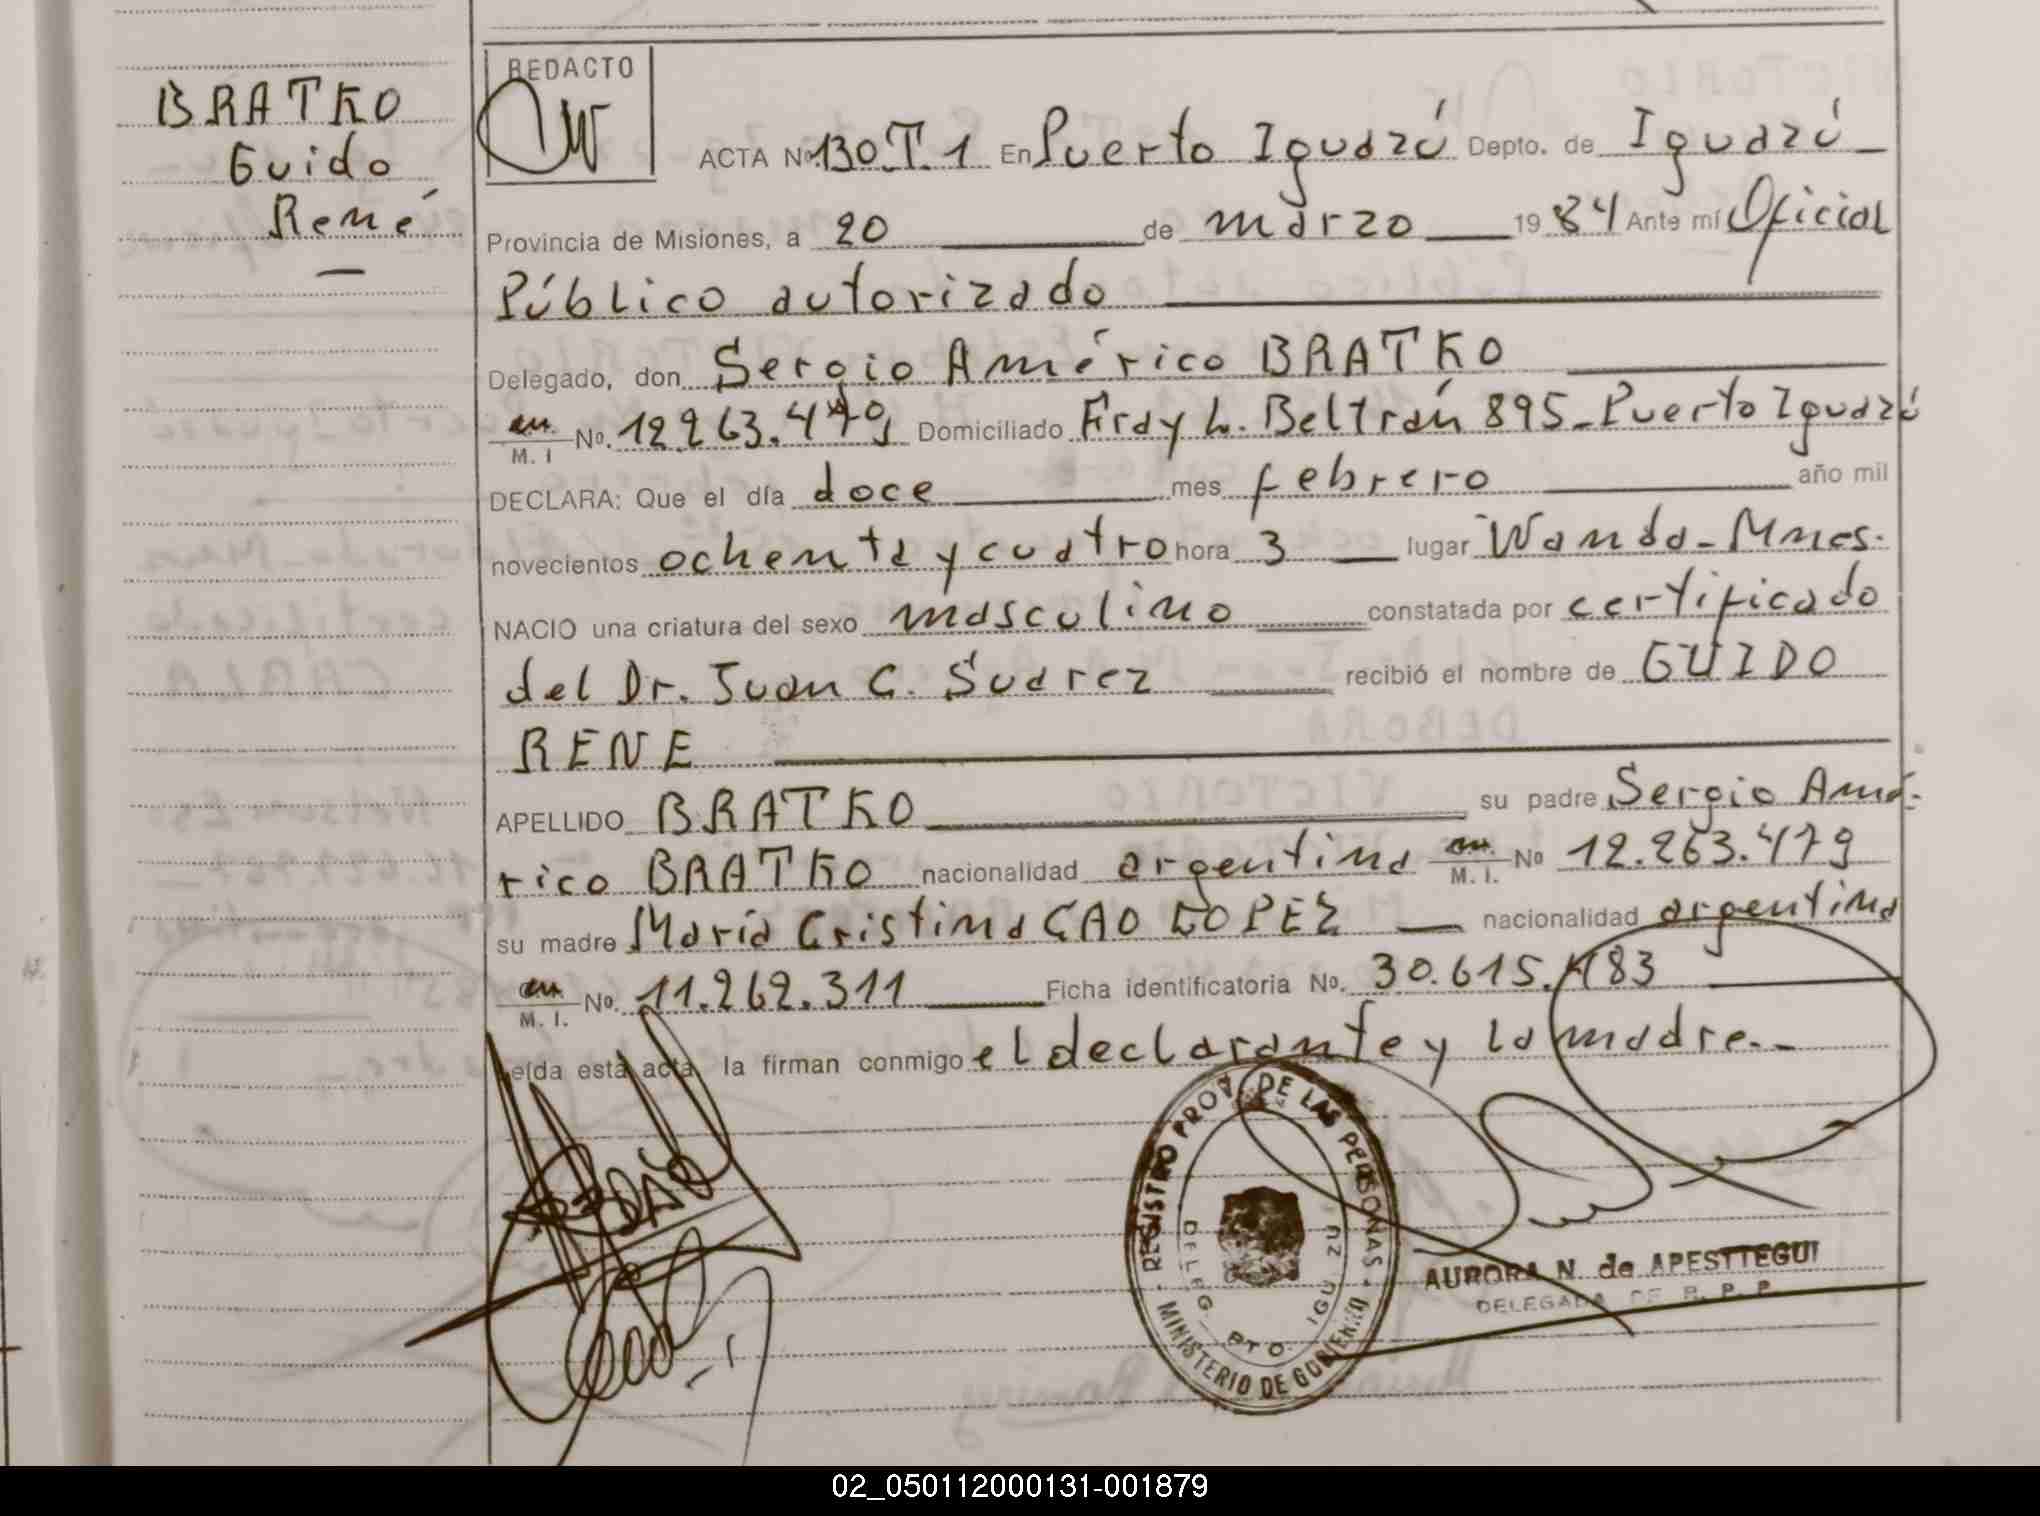 BRATKO
Guido
René
REDACTO
ACTA Nº 130.T.1 En Puerto Iguazú Depto. de Iguazú
Provincia de Misiones, a 20 de marzo 1984 Ante mí Oficial
Público autorizado
Delegado, don Sergio Américo BRATKO
M. I Nº. 12.263.479 Domiciliado Fray L. Beltrán 895 - Puerto Iguazú
DECLARA: Que el día doce mes febrero año mil
novecientos ochenta y cuatro hora 3 lugar Wanda - Mnes.
NACIO una criatura del sexo masculino constatada por certificado
del Dr. Juan C. Suarez recibió el nombre de GUIDO
RENE
APELLIDO BRATKO su padre Sergio Amé-
rico BRATKO nacionalidad argentina M. I. Nº 12.263.479
su madre María Cristina CAO LOPEZ nacionalidad argentina
M. I. Nº. 11.262.311 Ficha identificatoria Nº. 30.615.183
Leída esta acta, la firman conmigo el declarante y la madre.-
REGISTRO PROV. DE LAS PERSONAS
DELEG. PTO. IGUAZU
MINISTERIO DE GOBIERNO
AURORA N. de APESTTEGUI
DELEGADA DE R. P. P.
02_050112000131-001879